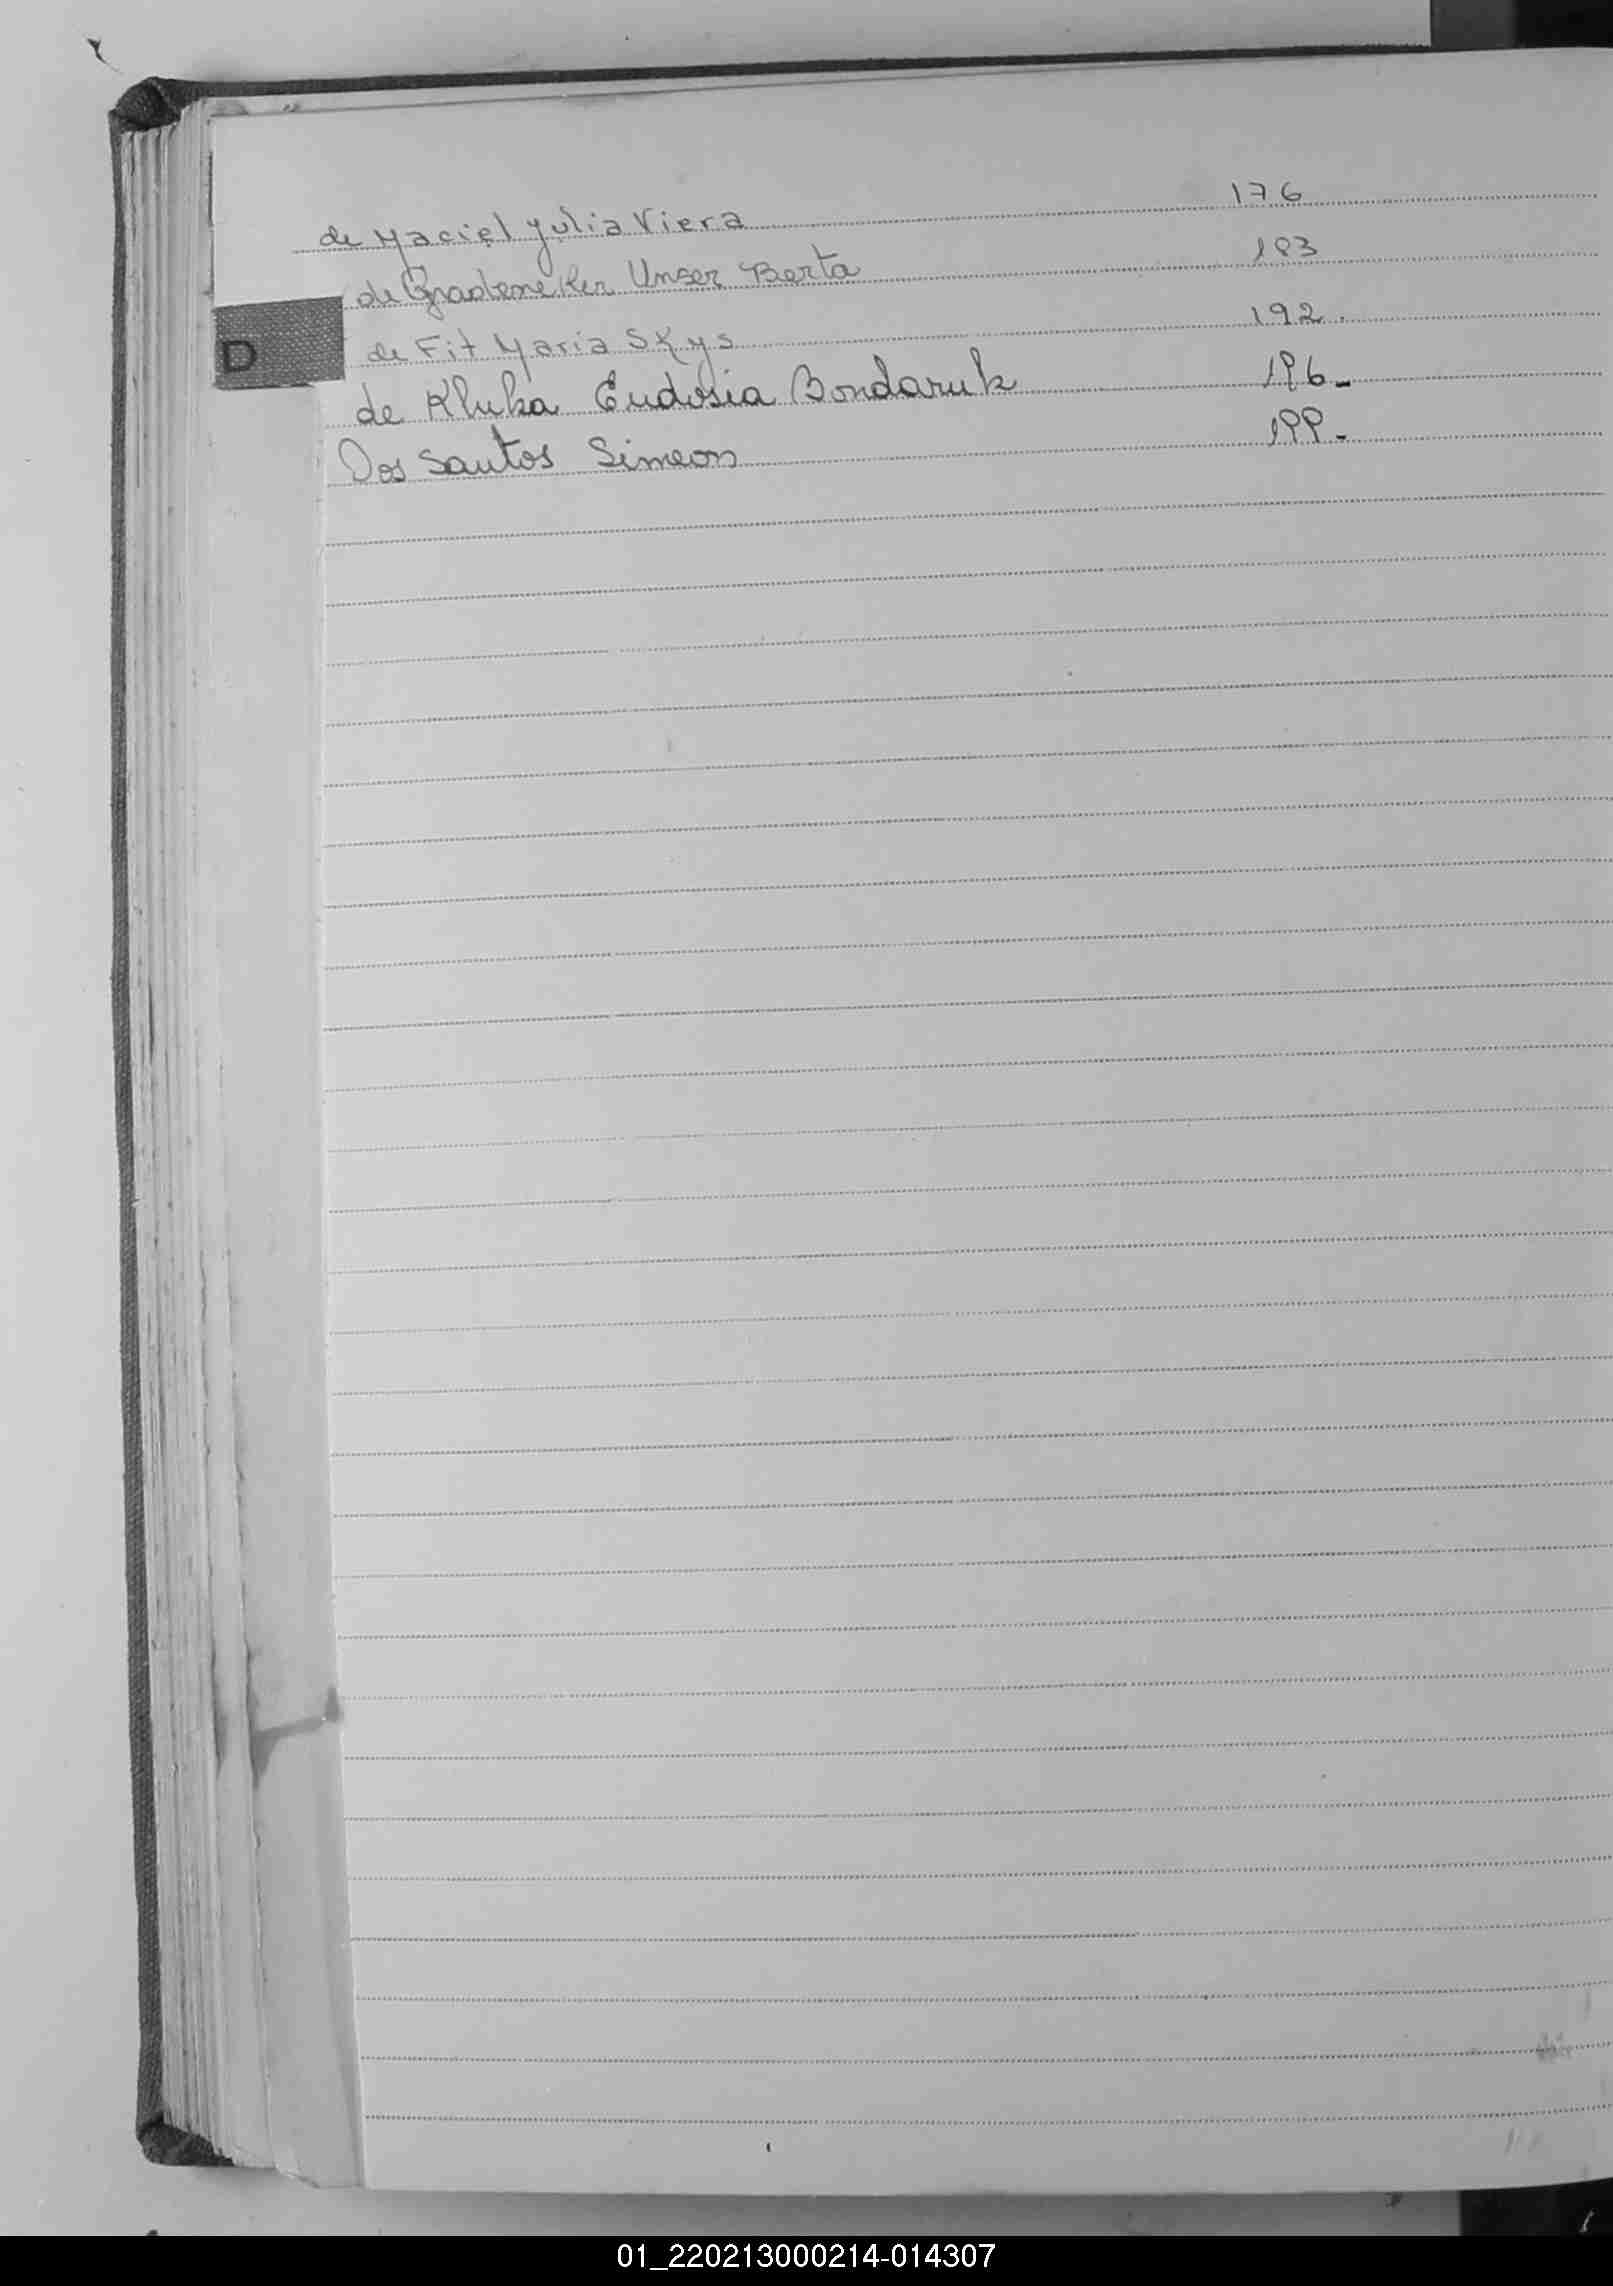 de Maciel Julia Viera 176
de Gradeneker Unser Berta 183
D
de Fit Maria Skys 192.
de Kluka Eudosia Bondaruk 196-
Dos Santos Simeon 199-
01_220213000214-014307